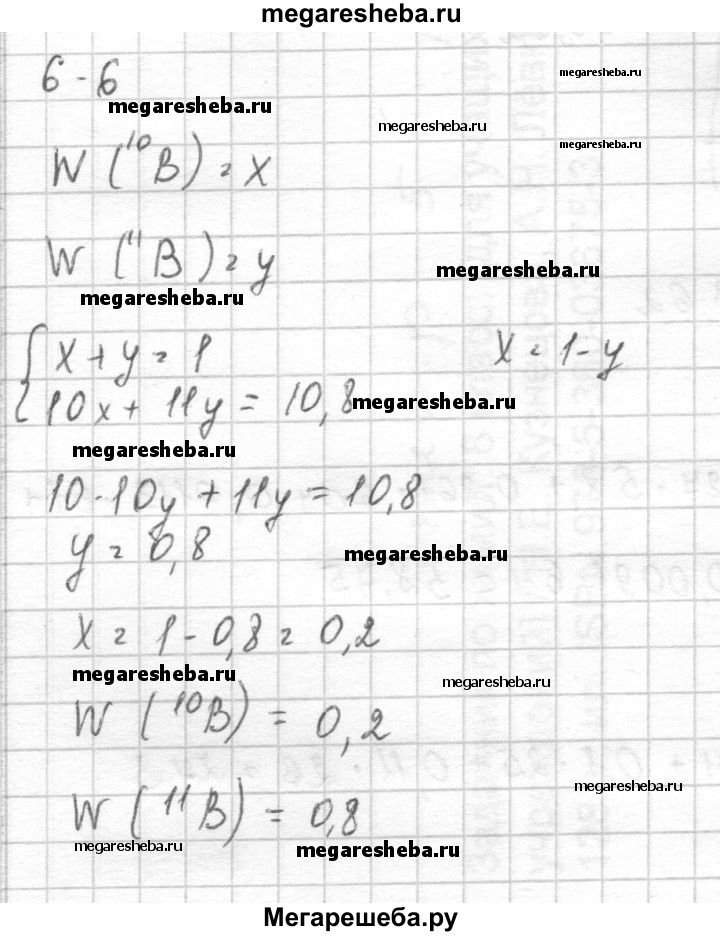 megaresheba.ru
6-6
megaresheba.ru
megaresheba.ru
megaresheba.ru
megaresheba.ru
W (¹⁰B) = x
W (¹¹B) = y
megaresheba.ru
megaresheba.ru
x + y = 1
x = 1 - y
10x + 11y = 10,8
megaresheba.ru
megaresheba.ru
10 - 10y + 11y = 10,8
y = 0,8
megaresheba.ru
x = 1 - 0,8 = 0,2
megaresheba.ru
megaresheba.ru
W (¹⁰B) = 0,2
megaresheba.ru
W (¹¹B) = 0,8
megaresheba.ru
megaresheba.ru
Мегарешеба.ру